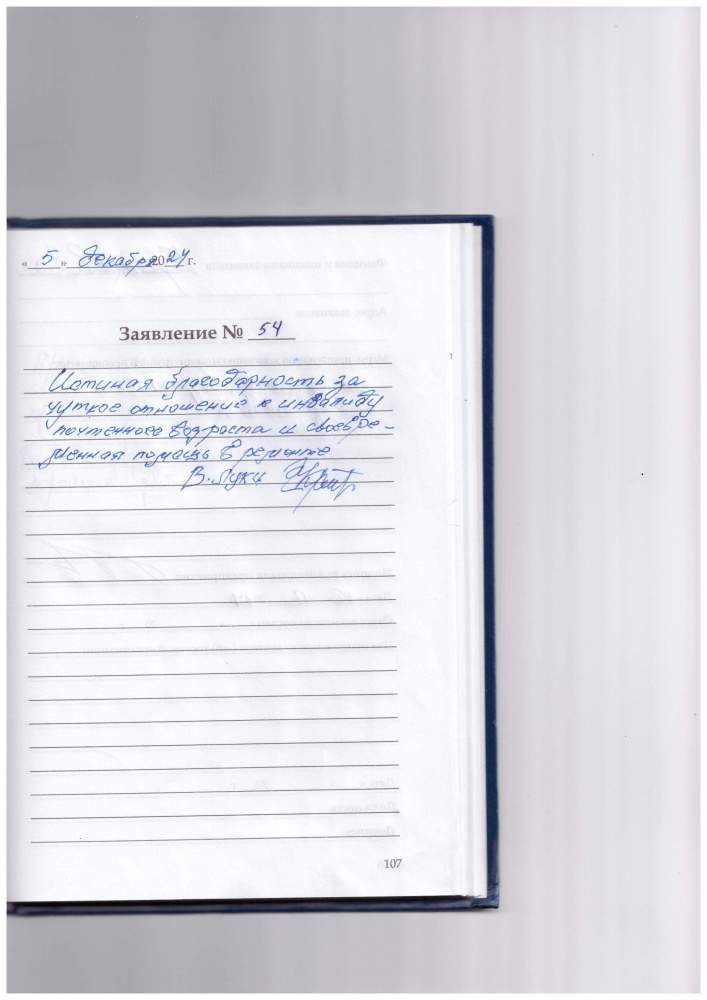 « 5 » Декабря 2024 г.
Заявление № 54
Истиная благодарность за
чуткое отношение к инвалиду
почтенного возраста и своевре-
менная помощь в ремонте
В. Луки
107